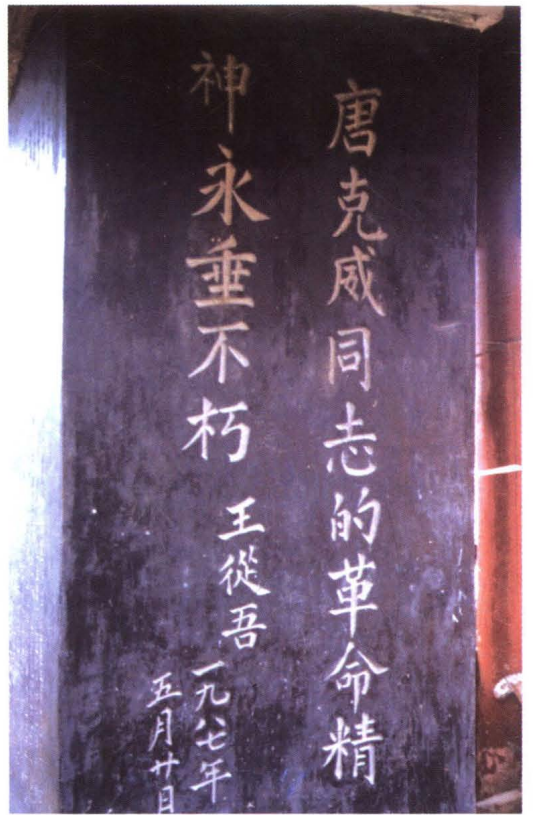 唐克威同志的革命精
神永垂不朽
王從吾
一九八七年
五月廿日